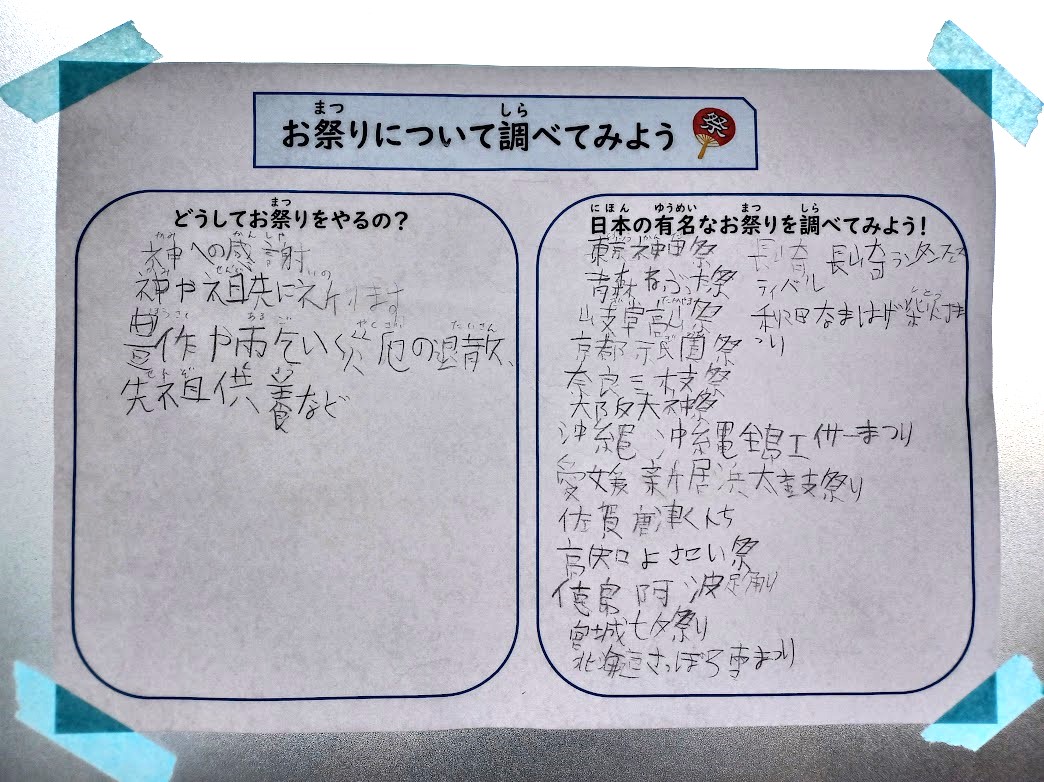 お祭りについて調べてみよう
祭
どうしてお祭りをやるの？
神への感謝
神や祖先に祈ります
豊作や雨乞い災厄の退散、
先祖供養など
日本の有名なお祭りを調べてみよう！
東京神田祭
青森ねぶた祭
岐阜高山祭
京都祇園祭
奈良三枝祭
大阪天神祭
沖縄 沖縄全島エイサーまつり
愛媛 新居浜太鼓祭り
佐賀 唐津くんち
高知 よさこい祭
徳島 阿波踊り
宮城七夕祭り
北海道さっぽろ雪まつり
長崎 長崎ランタンフェス
ティバル
秋田なまはげ柴灯ま
つり